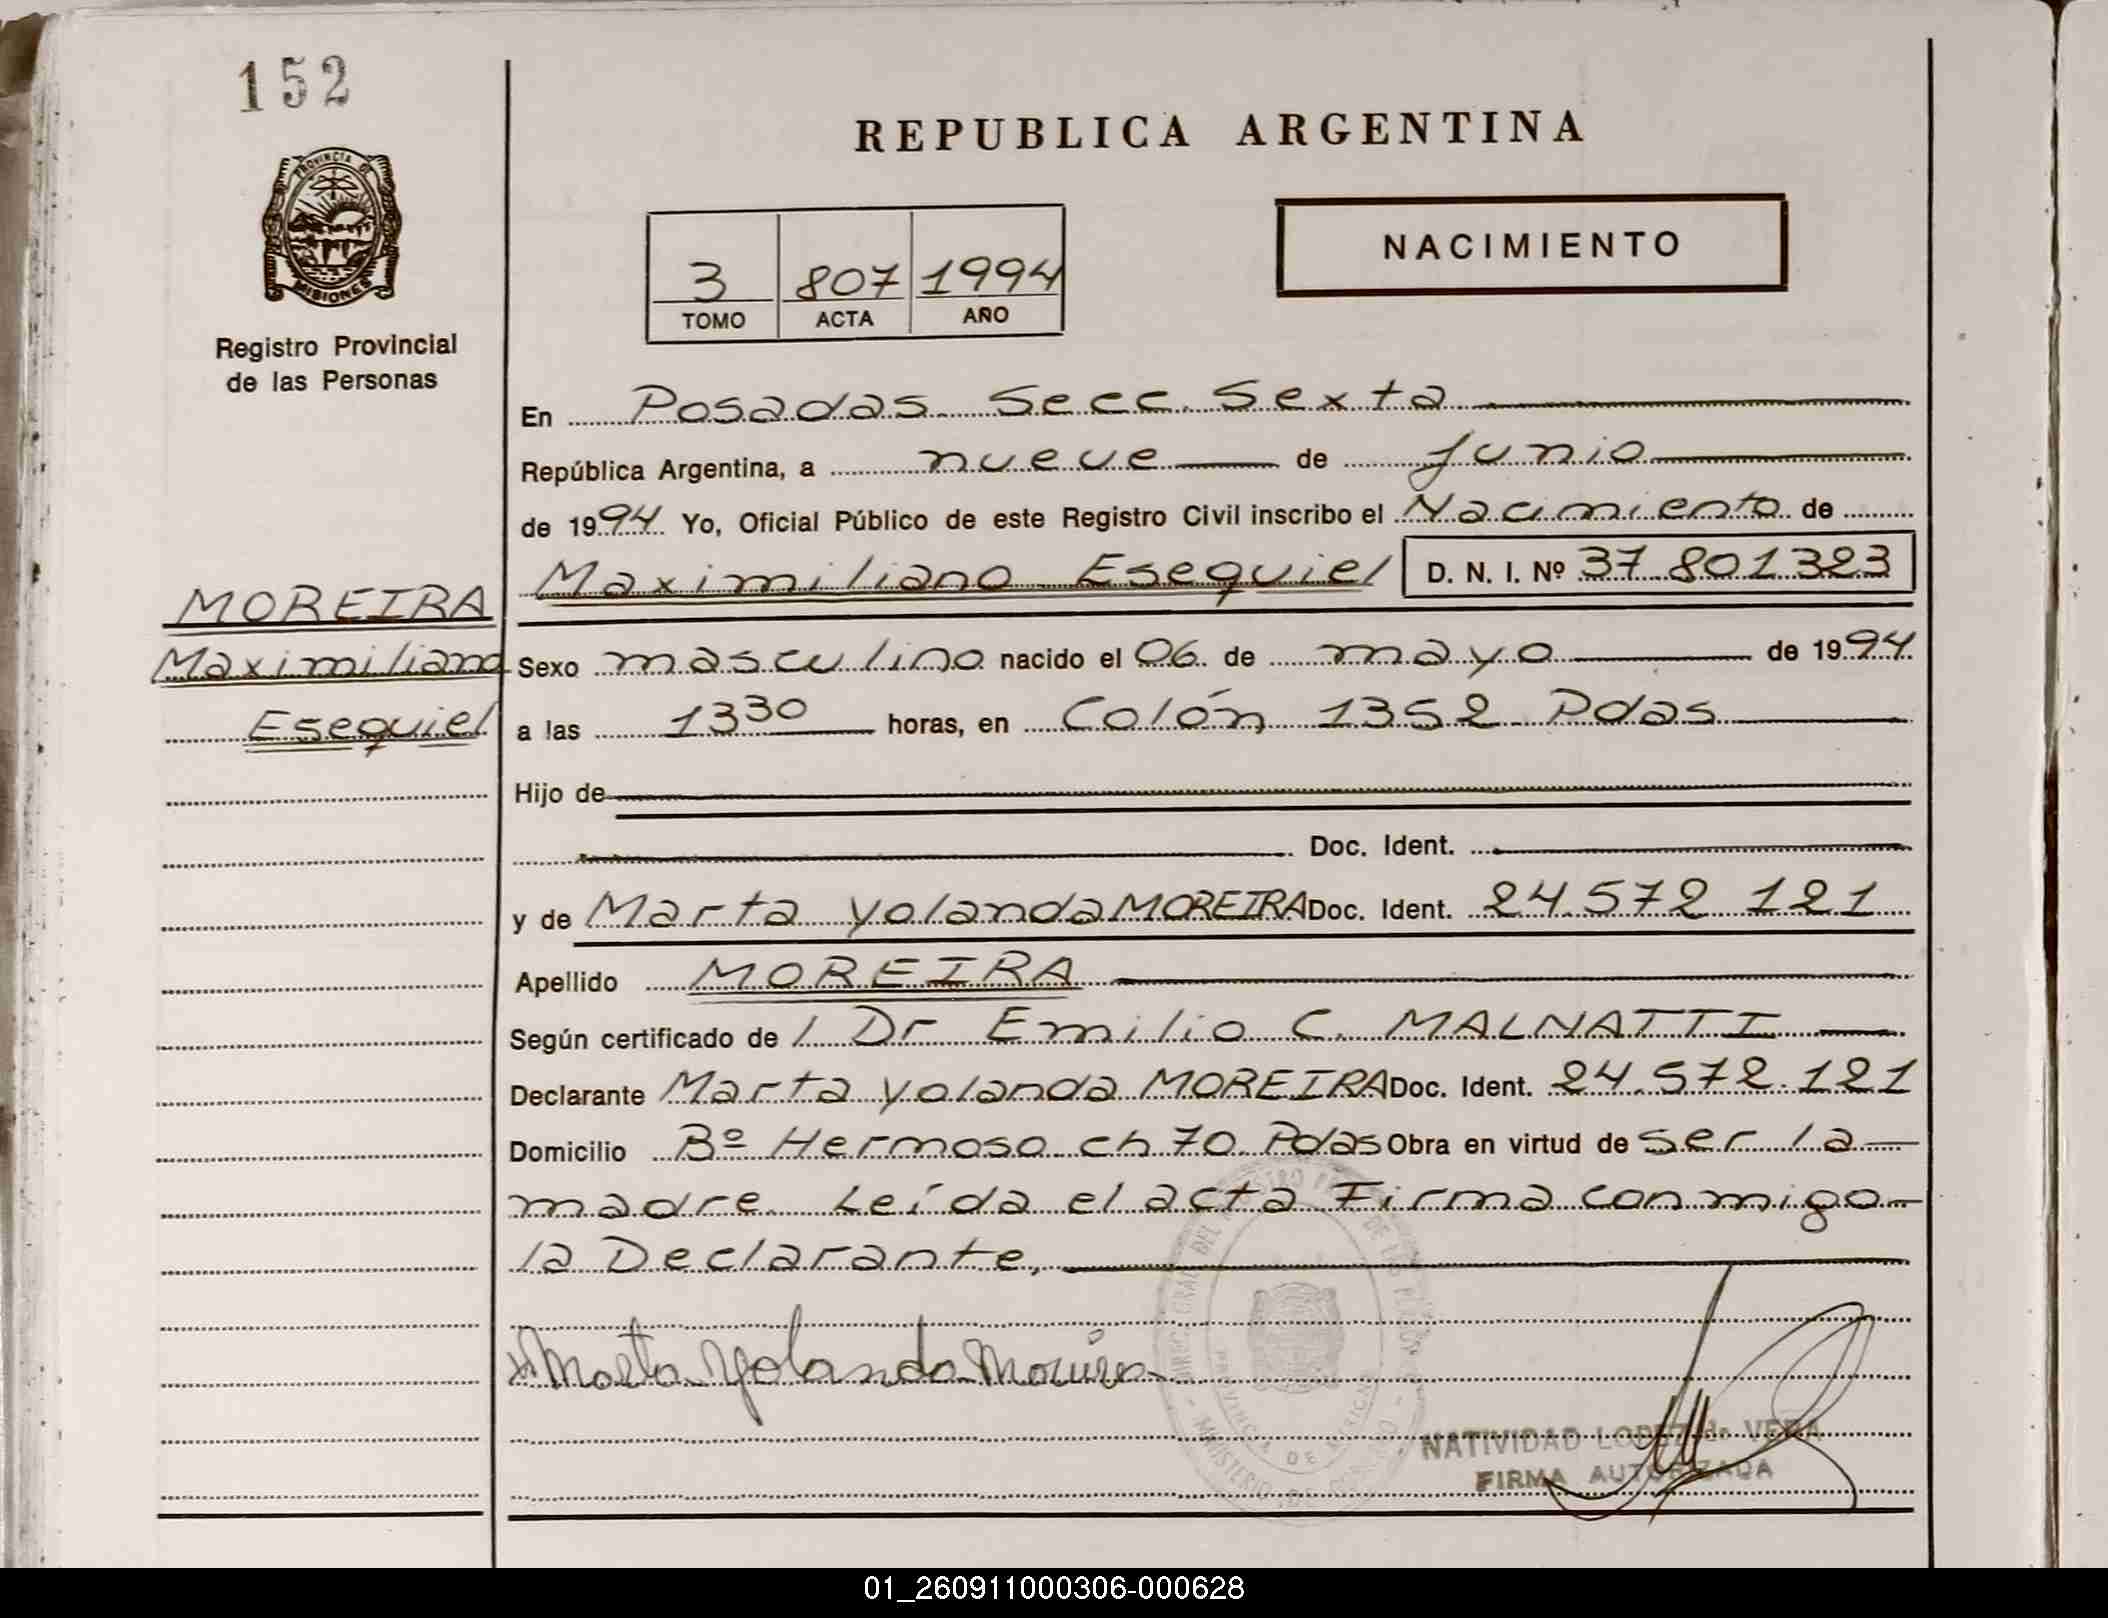 152
REPUBLICA ARGENTINA
PROVINCIA DE
MISIONES
Registro Provincial
de las Personas
3 807 1994
TOMO ACTA AÑO
NACIMIENTO
En Posadas Secc. Sexta
República Argentina, a nueve de junio
de 1994 Yo, Oficial Público de este Registro Civil inscribo el Nacimiento de
Maximiliano Esequiel D. N. I. Nº 37.801323
MOREIRA
Maximiliano
Esequiel
Sexo masculino nacido el 06 de mayo de 1994
a las 13 30 horas, en Colón, 1352 Pdas
Hijo de
Doc. Ident.
y de Marta Yolanda MOREIRA Doc. Ident. 24.572 121
Apellido MOREIRA
Según certificado de l Dr Emilio C. MALNATTI
Declarante Marta Yolanda MOREIRA Doc. Ident. 24.572.121
Domicilio Bº Hermoso ch 70 Pdas Obra en virtud de ser la
madre. Leída el acta Firma conmigo
la Declarante.
x Marta Yolanda Moreira
NATIVIDAD LOPEZ de VERA
FIRMA AUTORIZADA
01_260911000306-000628